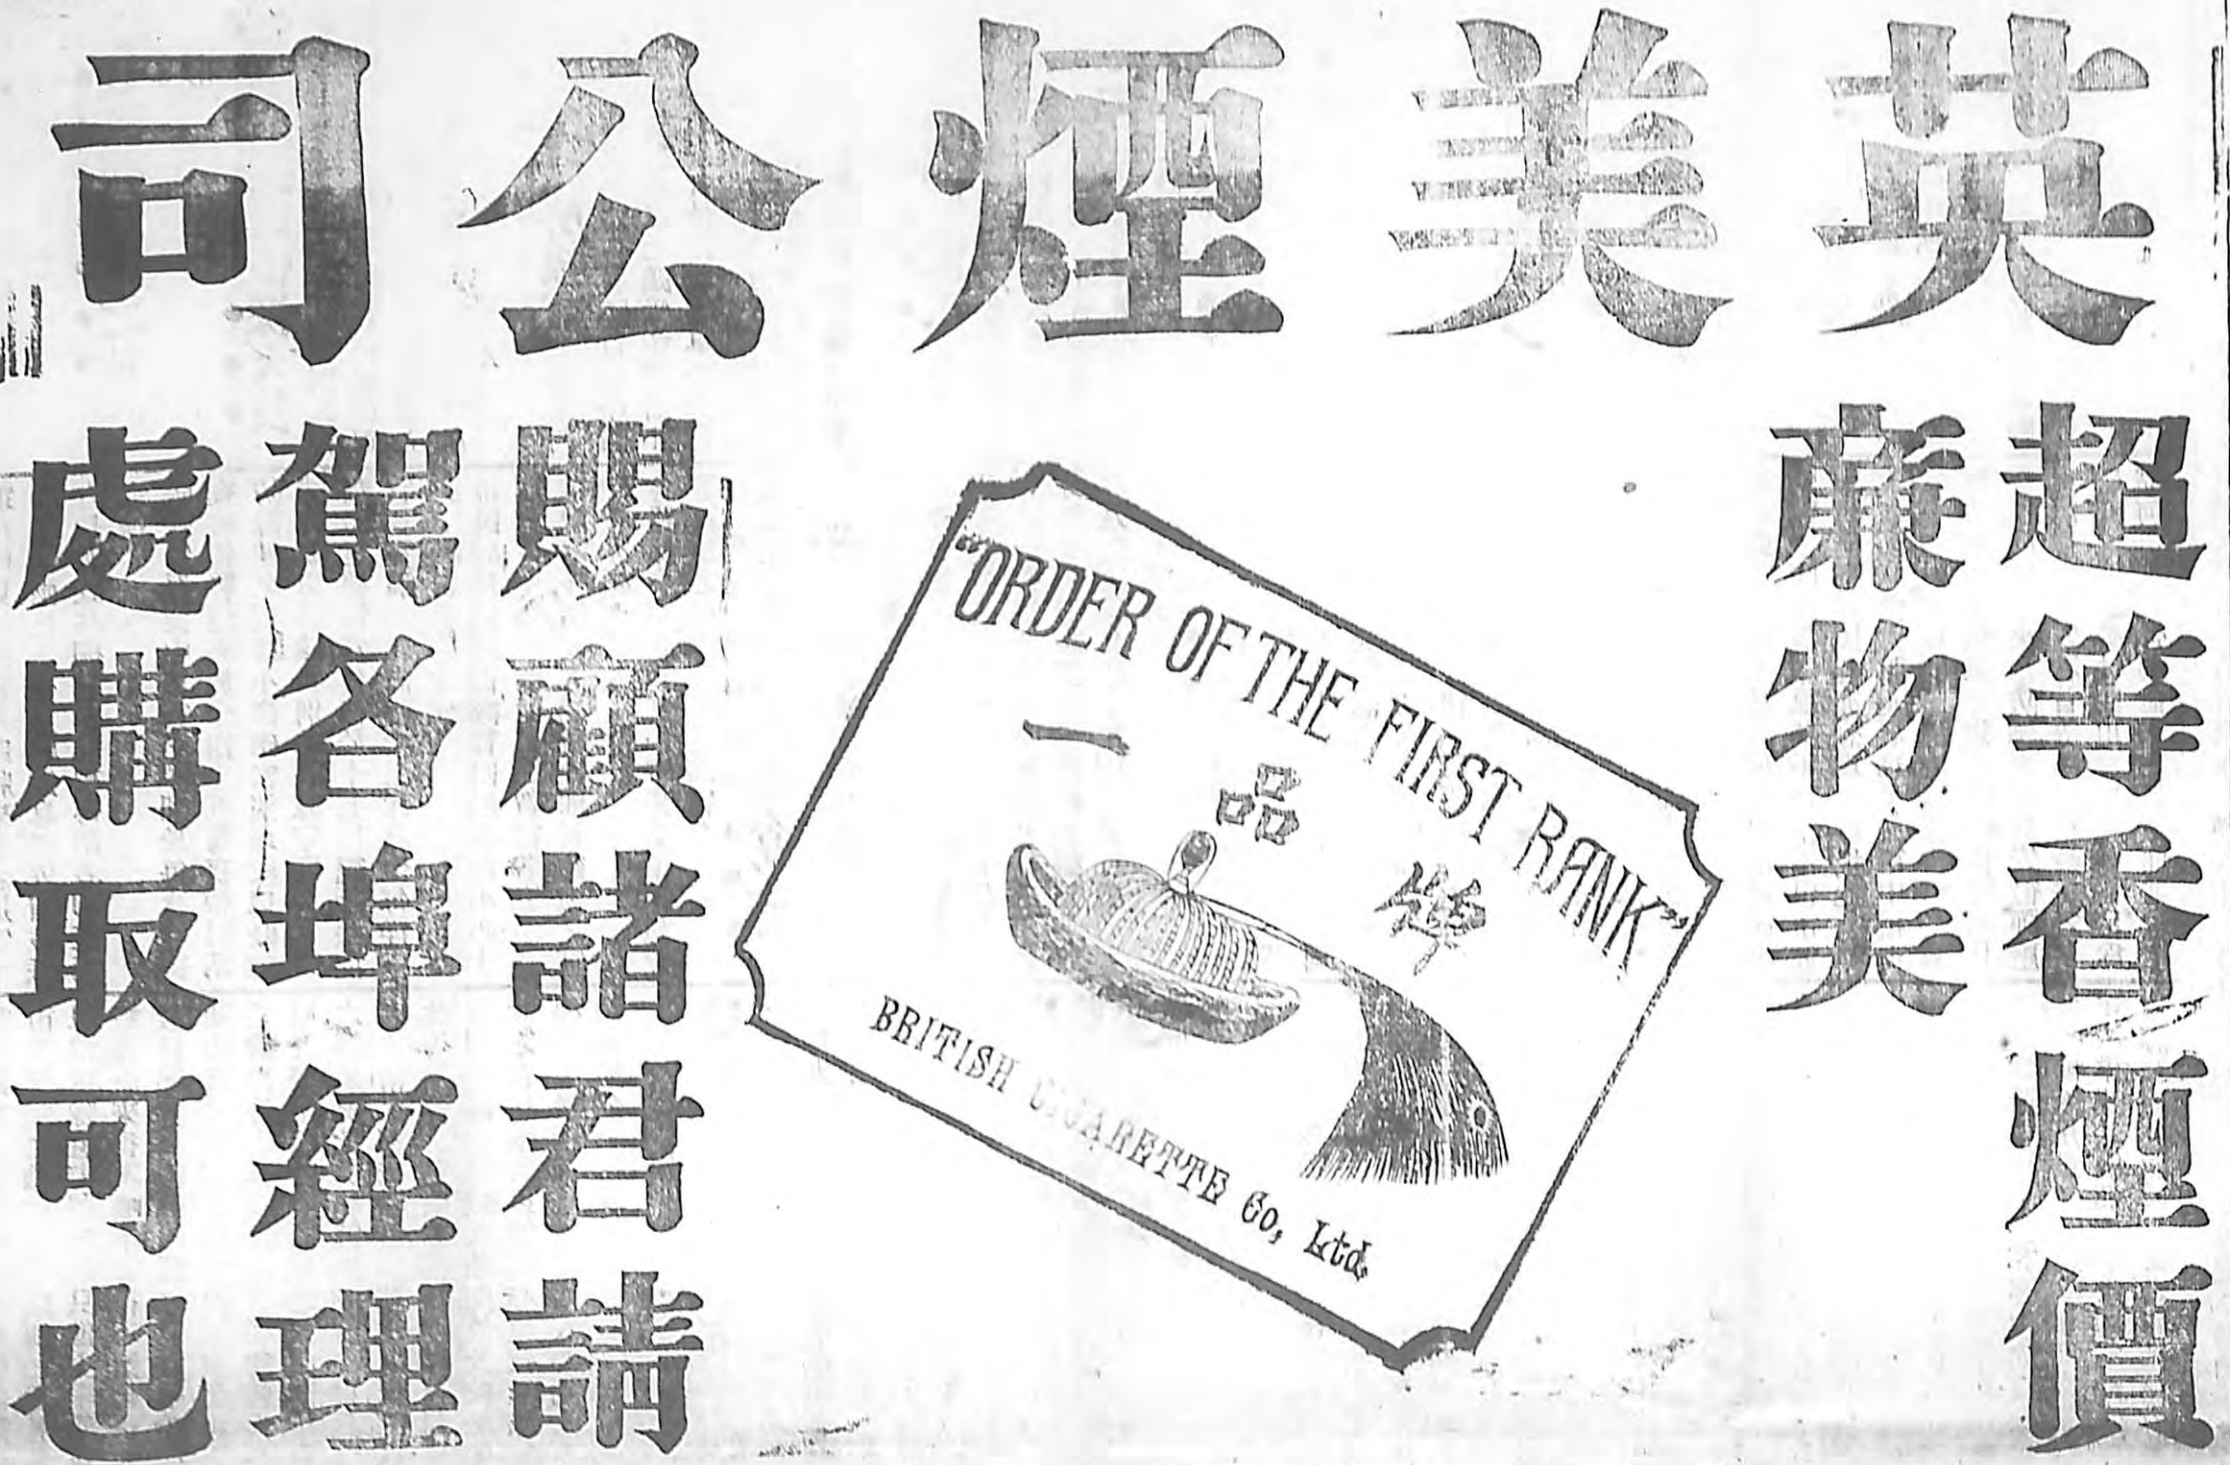 英美煙公司
超等香煙價
廉物美
"ORDER OF THE FIRST RANK"
一品牌
BRITISH CIGARETTE Co, Ltd.
賜顧諸君請
駕各埠經理
處購取可也